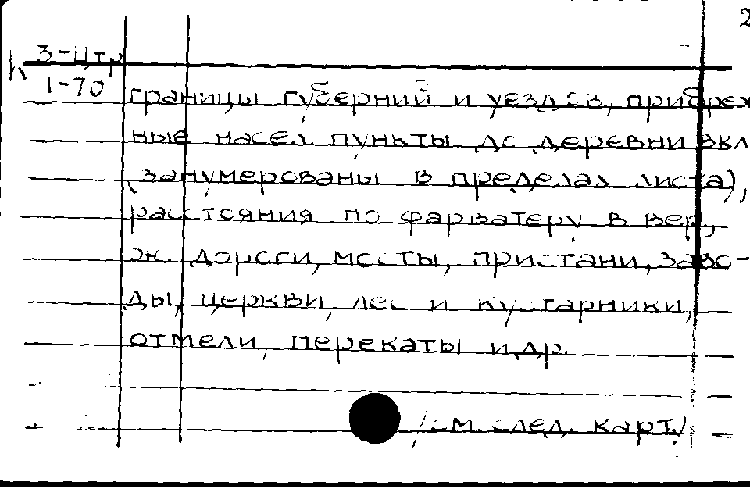 2
К 3-Цтр
1-70
границы губерний и уездов, прибреж
ные насел. пункты до деревни вкл
(занумерованы в пределах листа),
расстояния по фарватеру в вер.,
ж. дороги, мосты, пристани, заво-
ды, церкви, лес и кустарники,
отмели, перекаты и др.
/см. след. карт./